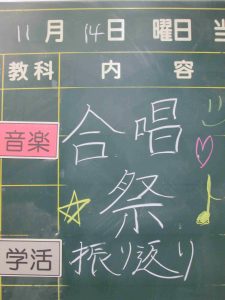 11月 14日 曜日 当
教科 内 容
音楽 合唱
祭
学活 振り返り